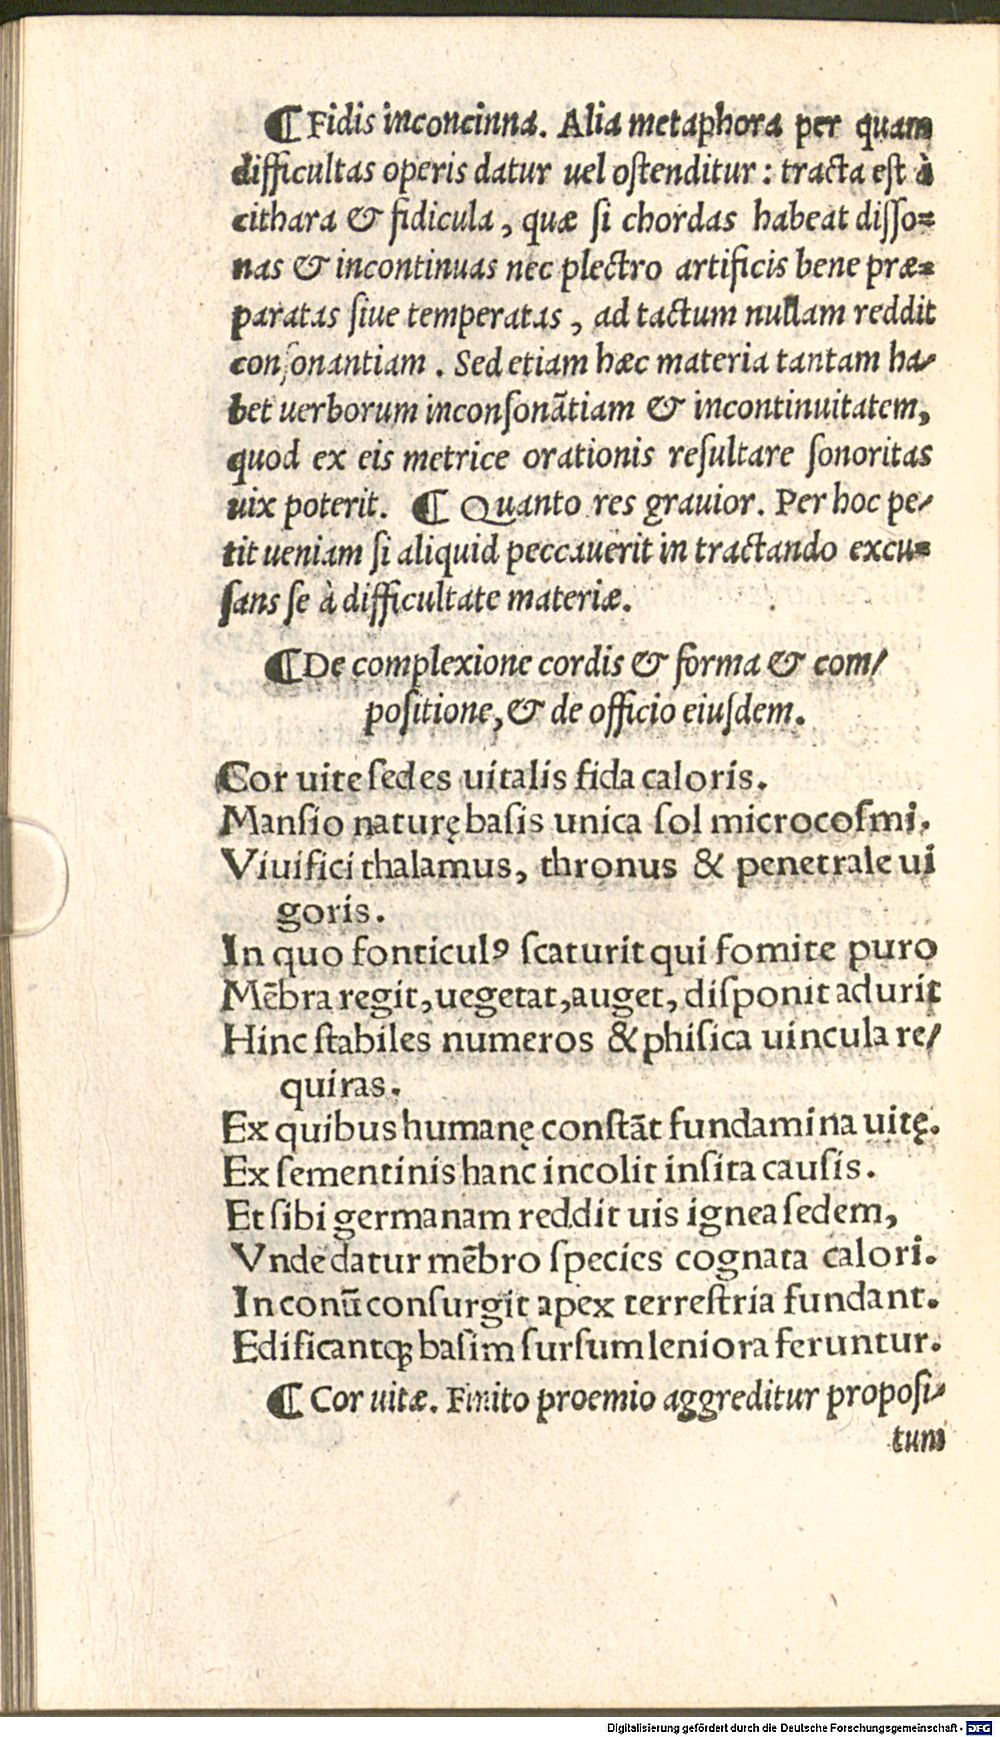 ¶ Fidis inconcinna. Alia metaphora per quam
difficultas operis datur uel oſtenditur: tracta eſt à
cithara & fidicula, quæ ſi chordas habeat diſſo=
nas & incontinuas nec plectro artificis bene præ=
paratas ſiue temperatas, ad tactum nullam reddit
conſonantiam. Sed etiam hæc materia tantam ha/
bet uerborum inconſonãtiam & incontinuitatem,
quod ex eis metrice orationis reſultare ſonoritas
uix poterit. ¶ Quanto res grauior. Per hoc pe/
tit ueniam ſi aliquid peccauerit in tractando excu=
ſans ſe à difficultate materiæ.
¶ De complexione cordis & forma & com/
poſitione, & de officio eiuſdem.
Cor uite ſedes uitalis fida caloris.
Manſio naturę baſis unica ſol microcoſmi.
Viuifici thalamus, thronus & penetrale ui
goris.
In quo fonticulꝰ ſcaturit qui fomite puro
Mẽbra regit, uegetat, auget, diſponit adurit
Hinc ſtabiles numeros & phiſica uincula re/
quiras.
Ex quibus humanę conſtãt fundamina uitę.
Ex ſementinis hanc incolit inſita cauſis.
Et ſibi germanam reddit uis ignea ſedem,
Vnde datur mẽbro ſpecies cognata calori.
In conũ conſurgit apex terreſtria fundant.
Edificantqꝫ baſim ſurſum leniora feruntur.
¶ Cor uitæ. Finito proemio aggreditur propoſi/
tum
Digitalisierung gefördert durch die Deutsche Forschungsgemeinschaft - DFG